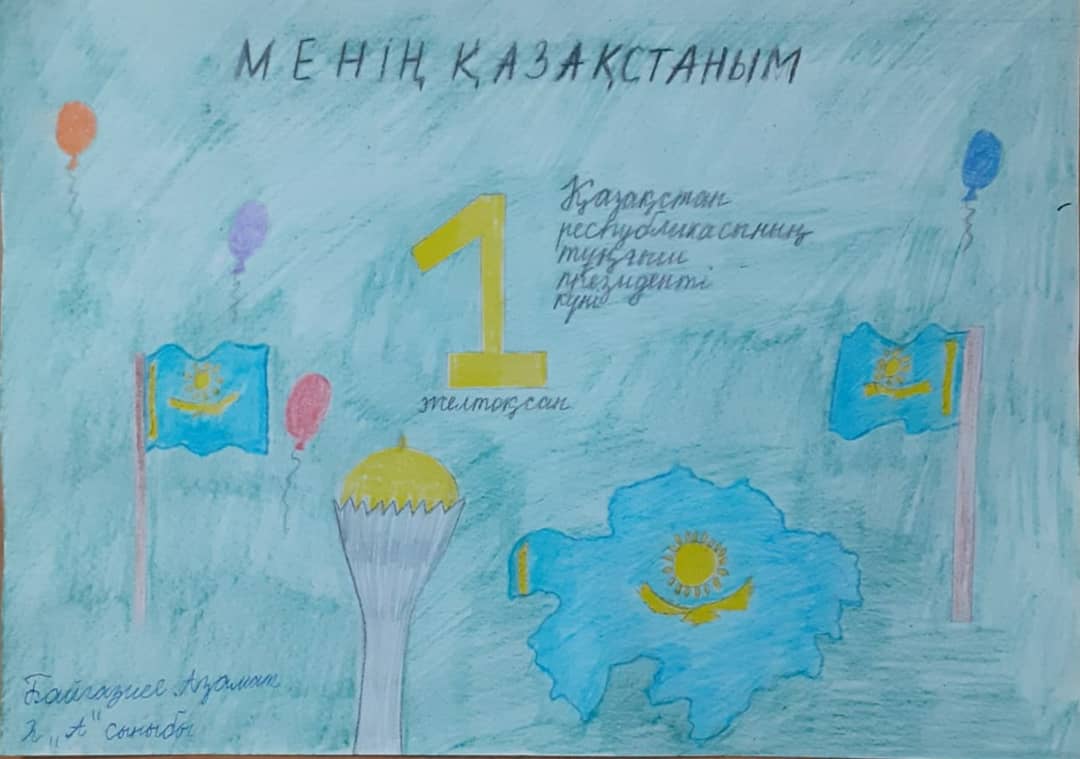 МЕНІҢ ҚАЗАҚСТАНЫМ
1
Қазақстан
республикасының
тұңғыш
президенті
күні
желтоқсан
Байгазиев Азамат
"А" сыныбы